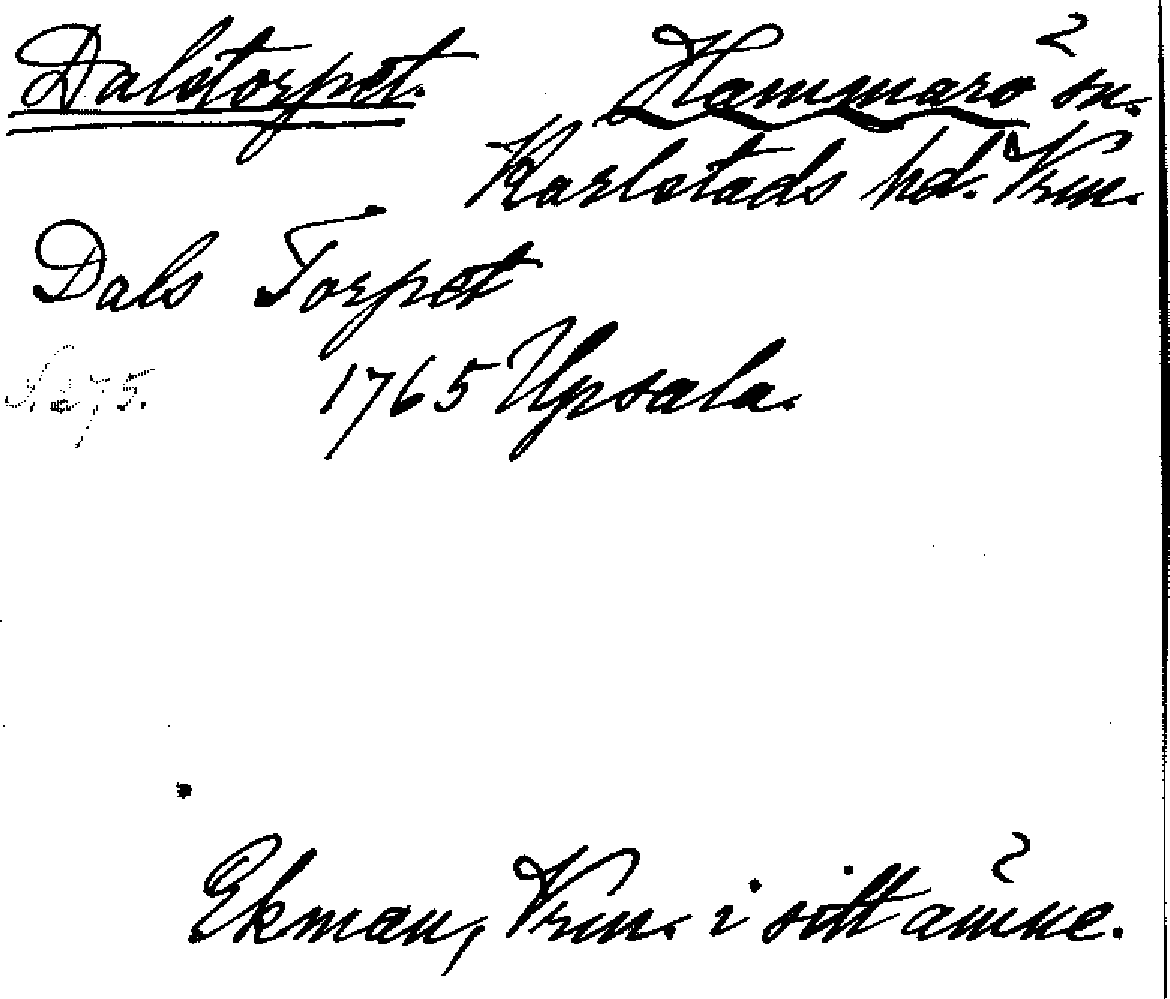 Dalstorpet. Hammarö sn.
Karlstads hd. Vrm.
Dals Torpet
1765 Upsala.
Ekman, Vrm. i sitt ämne.